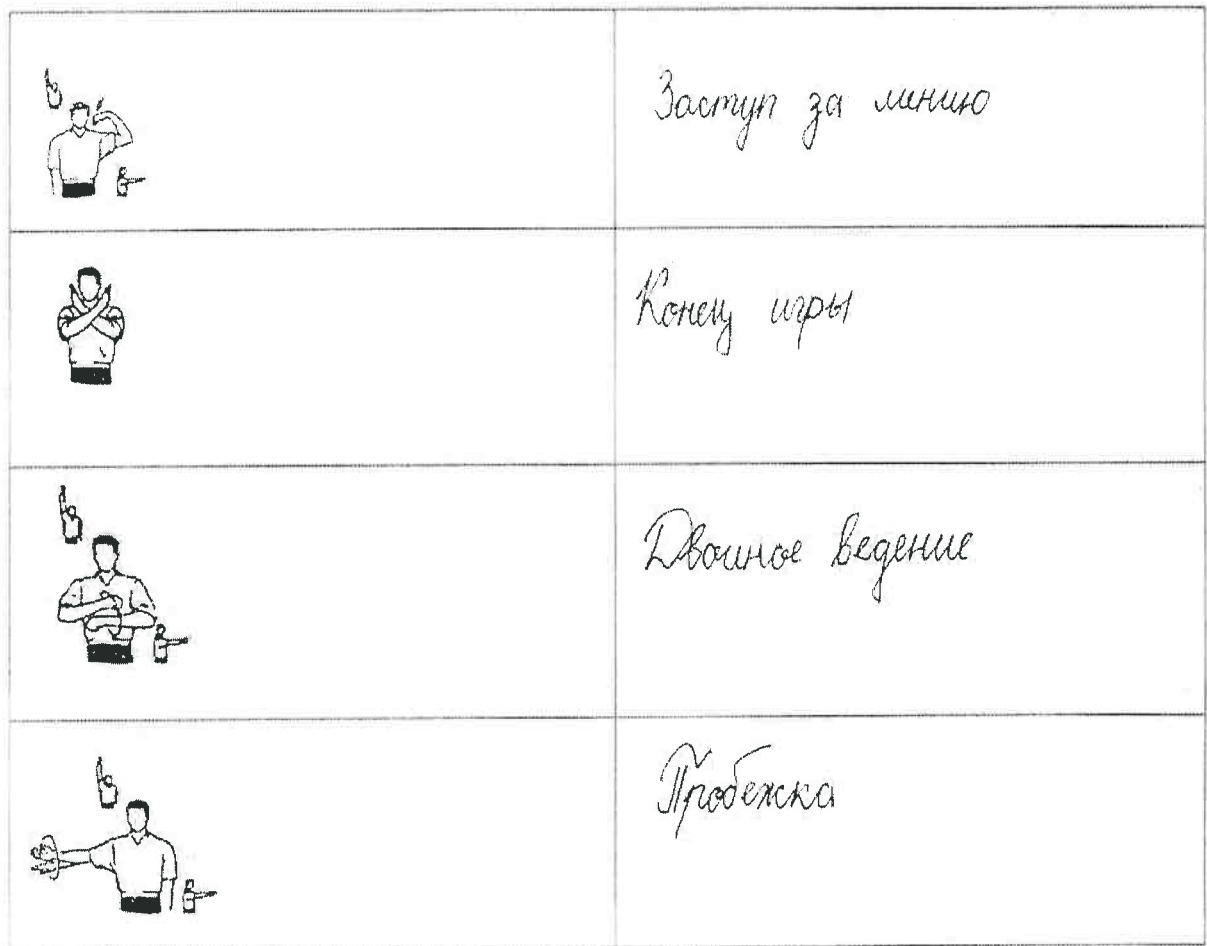 Заступ за линию
Конец игры
Двойное ведение
Пробежка